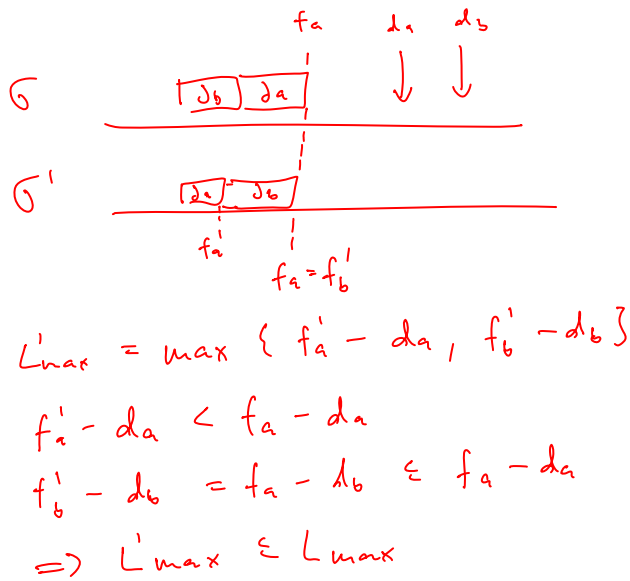 fa da db
σ Jb Ja
σ' Ja Jb
fa'
fa = fb'
L'max = max { fa' - da, fb' - db }
fa' - da < fa - da
fb' - db = fa - db ≤ fa - da
=> L'max ≤ Lmax